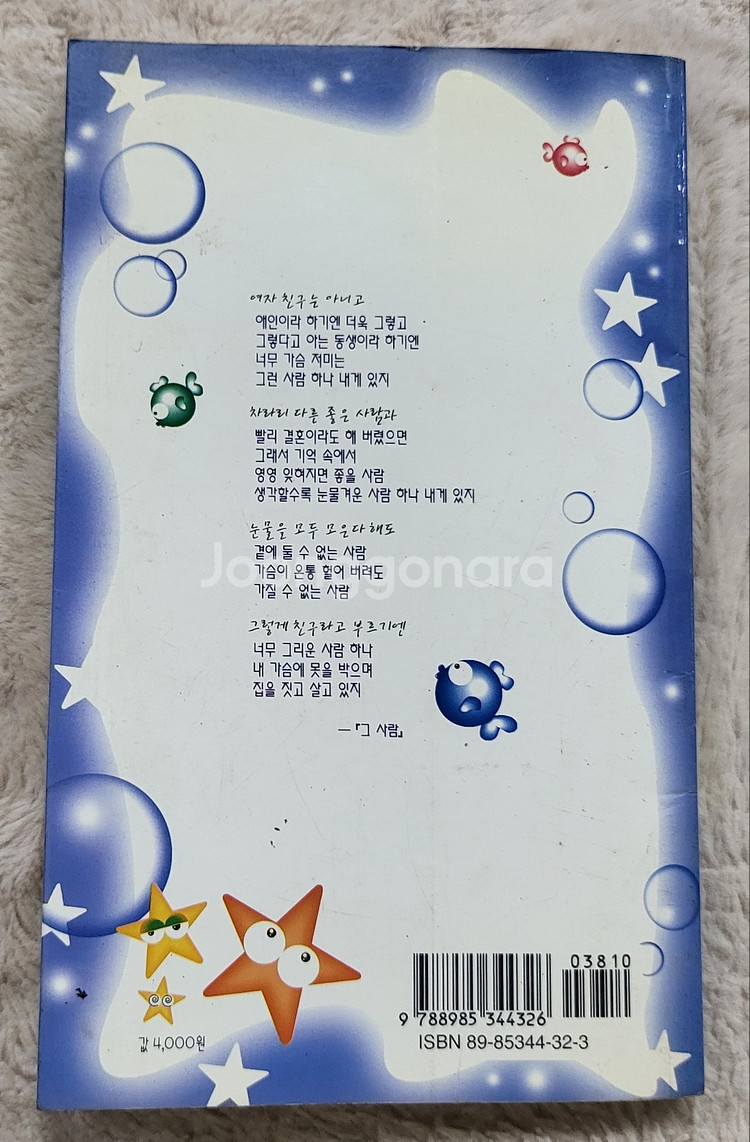 여자 친구는 아니고
애인이라 하기엔 더욱 그렇고
그렇다고 아는 동생이라 하기엔
너무 가슴 저미는
그런 사람 하나 내게 있지
차라리 다른 좋은 사람과
빨리 결혼이라도 해 버렸으면
그래서 기억 속에서
영영 잊혀지면 좋을 사람
생각할수록 눈물겨운 사람 하나 내게 있지
눈물을 모두 모은다해도
곁에 둘 수 없는 사람
가슴이 온통 헐어 버려도
가질 수 없는 사람
그렇게 친구라고 부르기엔
너무 그리운 사람 하나
내 가슴에 못을 박으며
집을 짓고 살고 있지
─『그 사람』
Joonggonara
03810
9 788985 344326
ISBN 89-85344-32-3
값 4,000원